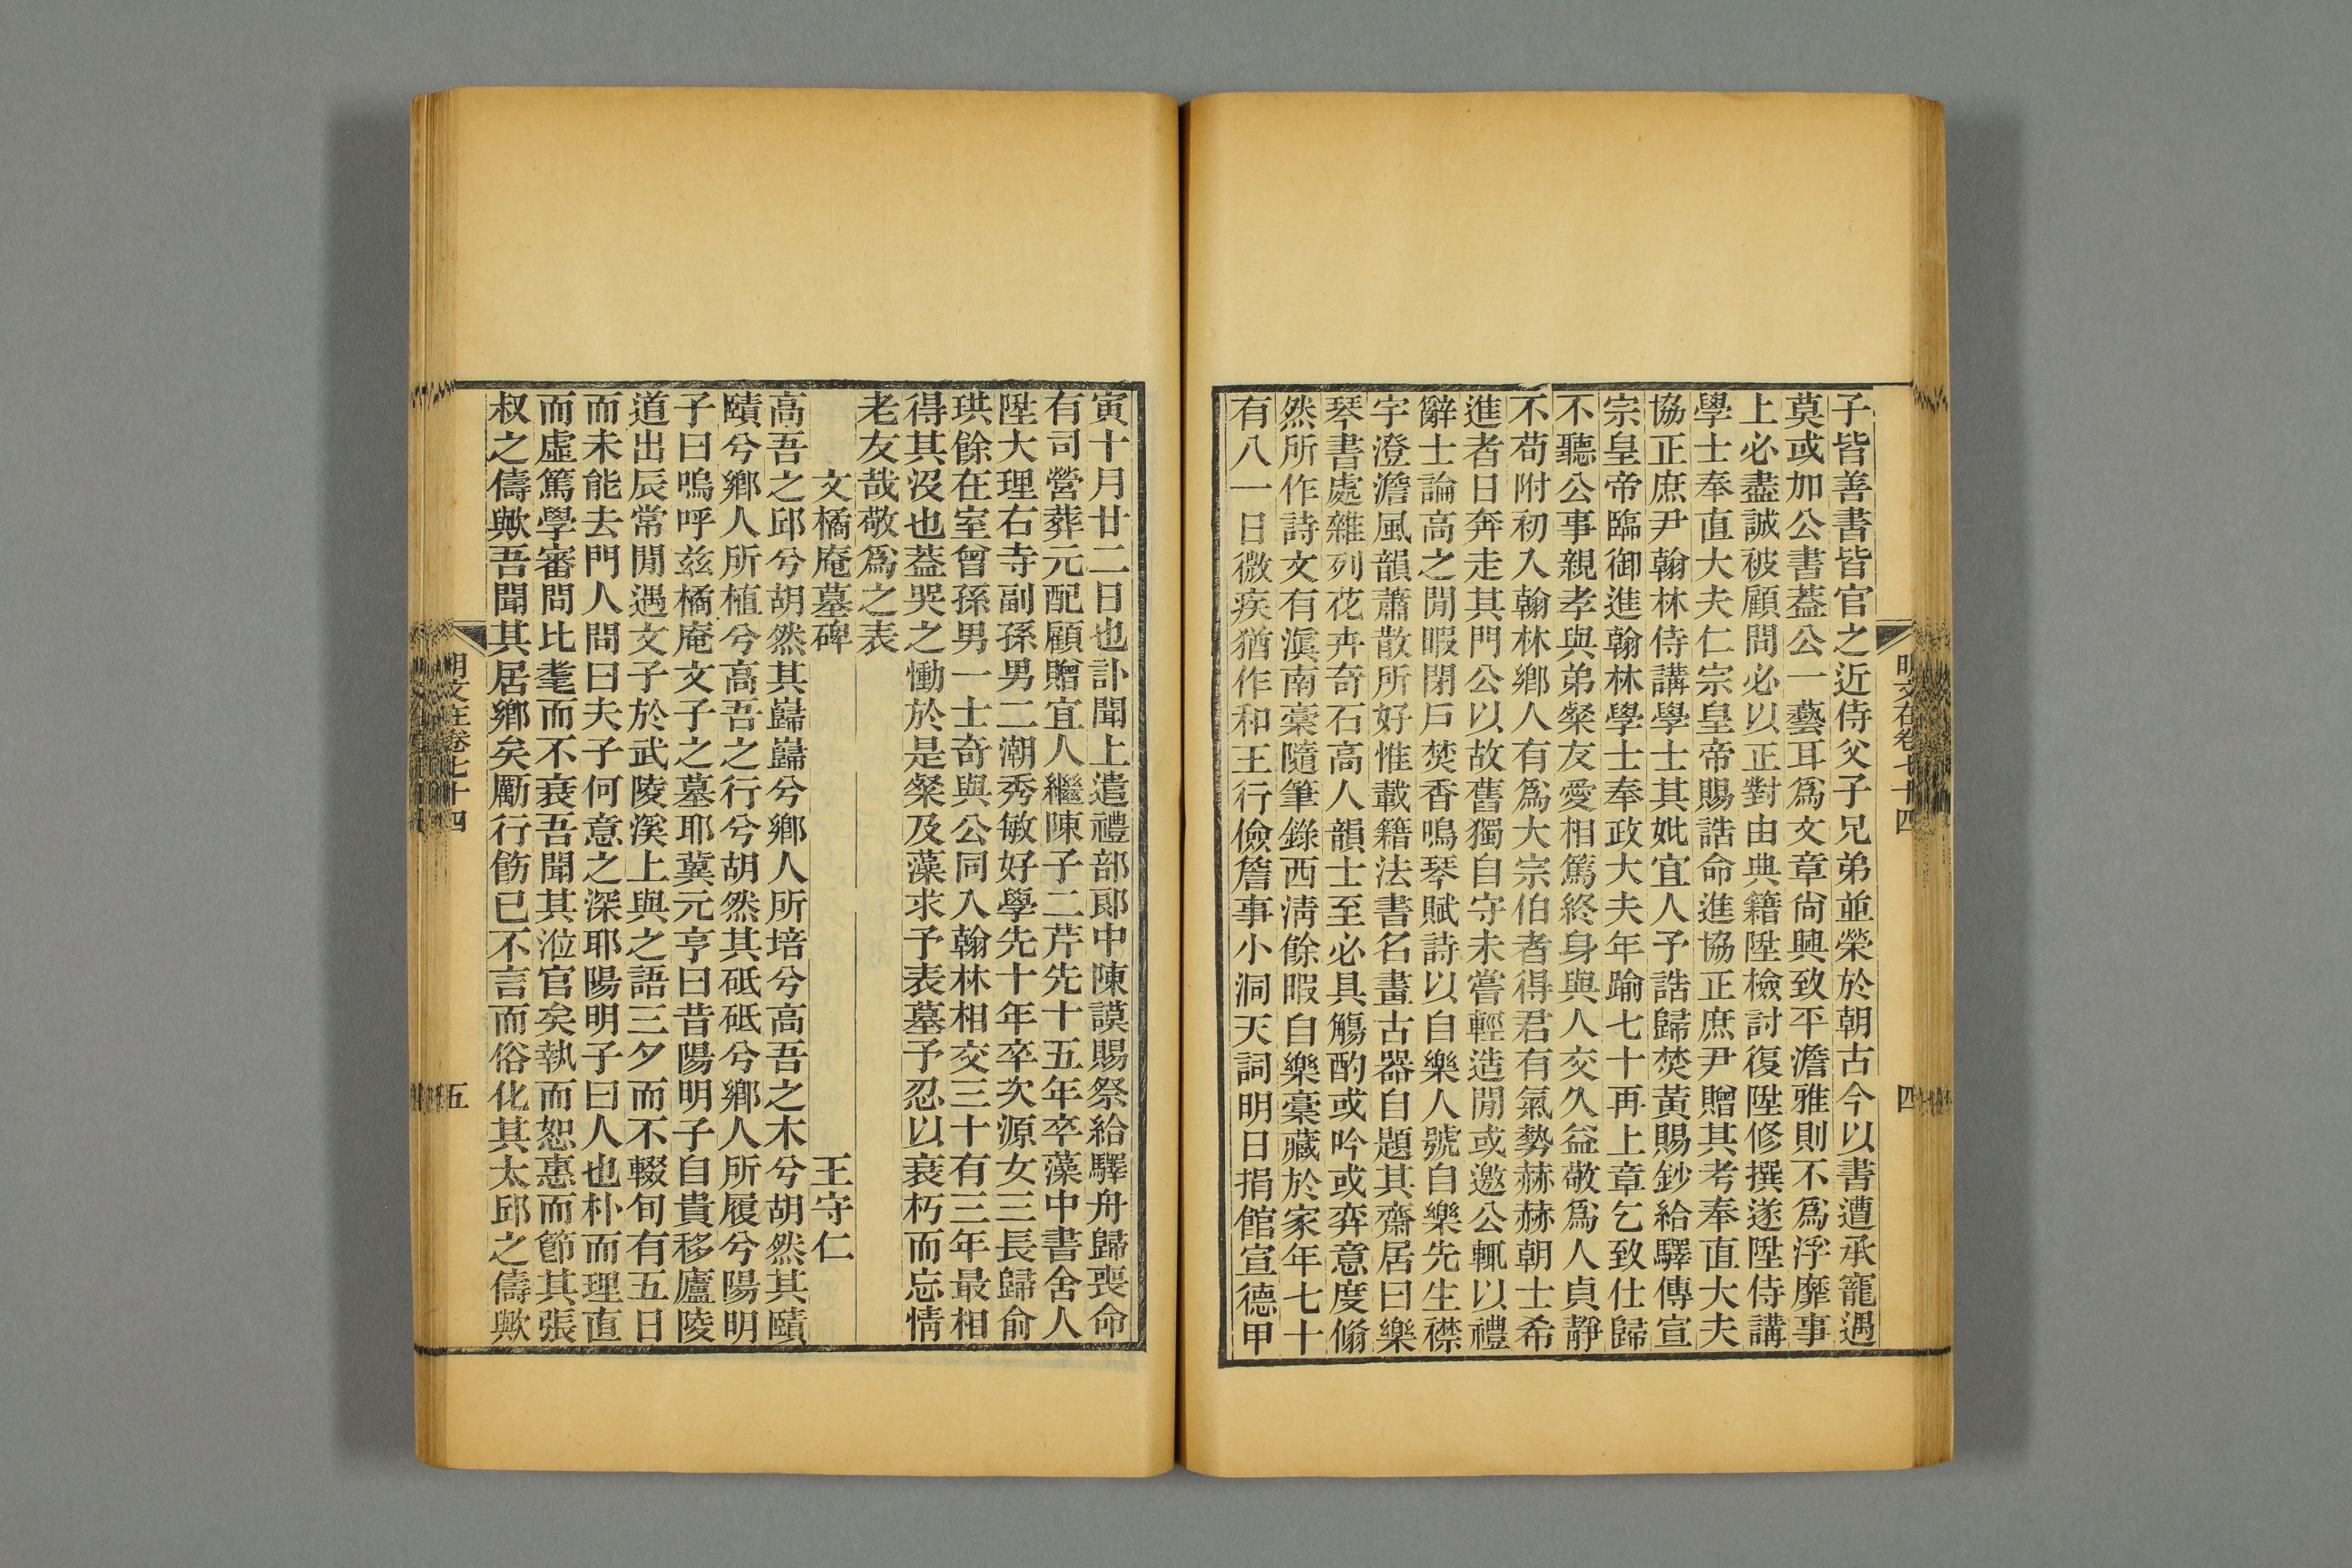 子皆善書皆官之近侍父子兄弟並榮於朝古今以書遭承寵遇
莫或加公書葢公一藝耳爲文章尙興致平澹雅則不爲浮靡事
上必盡誠被顧問必以正對由典籍陞檢討復陞修撰遂陞侍講
學士奉直大夫仁宗皇帝賜誥命進協正庶尹贈其考奉直大夫
協正庶尹翰林侍講學士其妣宜人予誥歸焚黃賜鈔給驛傳宣
宗皇帝臨御進翰林學士奉政大夫年踰七十再上章乞致仕歸
不聽公事親孝與弟粲友愛相篤終身與人交久益敬爲人貞靜
不苟附初入翰林鄉人有爲大宗伯者得君有氣勢赫赫朝士希
進者日奔走其門公以故舊獨自守未嘗輕造閒或邀公輒以禮
辭士論高之閒暇閉戶焚香鳴琴賦詩以自樂人號自樂先生襟
宇澄澹風韻蕭散所好惟載籍法書名畫古器自題其齋居曰樂
琴書處雜列花卉奇石高人韻士至必具觴酌或吟或弈意度翛
然所作詩文有滇南稾隨筆錄西淸餘暇自樂稾藏於家年七十
有八一日微疾猶作和王行儉詹事小洞天詞明日捐館宣德甲
明文在卷七十四
四
寅十月廿二日也訃聞上遣禮部郞中陳謨賜祭給驛舟歸喪命
有司營葬元配顧贈宜人繼陳子二芹先十五年卒藻中書舍人
陞大理右寺副孫男二潮秀敏好學先十年卒次源女三長歸俞
珙餘在室曾孫男一士奇與公同入翰林相交三十有三年最相
得其沒也葢哭之慟於是粲及藻求予表墓予忍以衰朽而忘情
老友哉敬爲之表
文橘庵墓碑　王守仁
高吾之邱兮胡然其巋巋兮鄉人所培兮高吾之木兮胡然其賾
賾兮鄉人所植兮高吾之行兮胡然其砥砥兮鄉人所履兮陽明
子曰嗚呼玆橘庵文子之墓耶冀元亨曰昔陽明子自貴移廬陵
道出辰常閒遇文子於武陵溪上與之語三夕而不輟旬有五日
而未能去門人問曰夫子何意之深耶陽明子曰人也朴而理直
而虛篤學審問比耄而不衰吾聞其涖官矣執而恕惠而節其張
叔之儔歟吾聞其居鄉矣勵行飭已不言而俗化其太邱之儔歟
明文在卷七十四
五